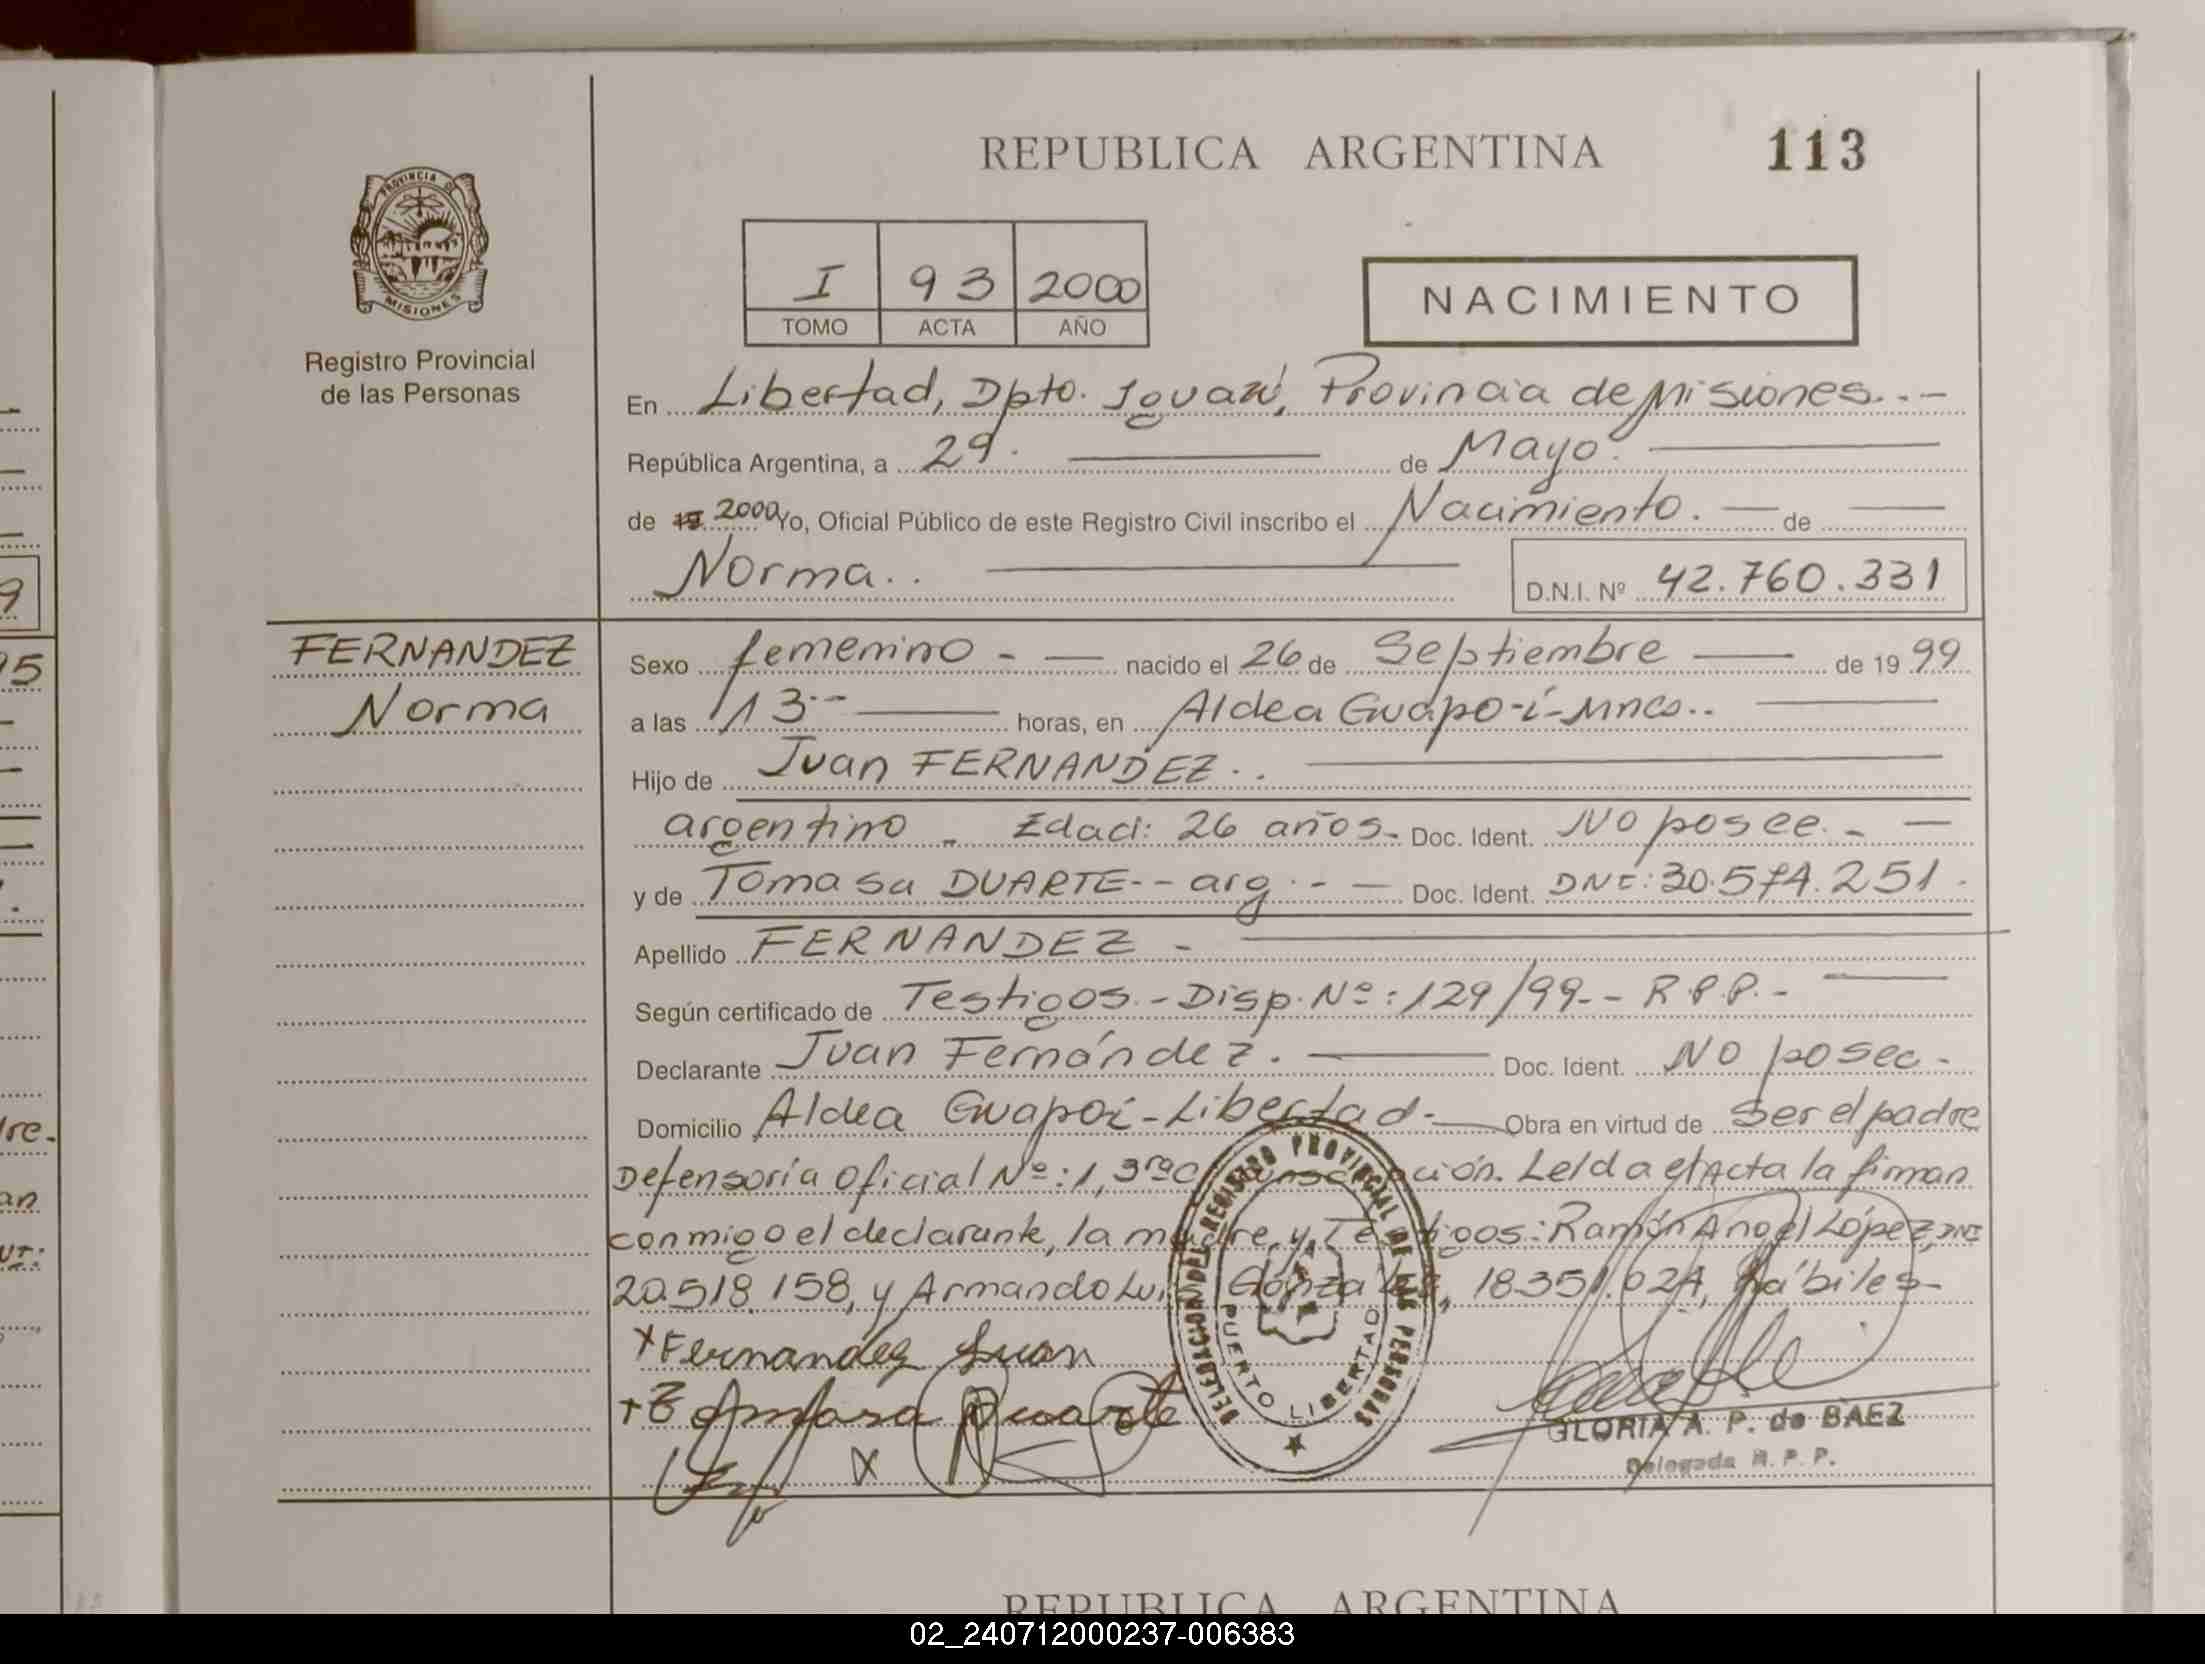 REPUBLICA ARGENTINA 113
PROVINCIA DE MISIONES
Registro Provincial
de las Personas
I 93 2000
TOMO ACTA AÑO
NACIMIENTO
En Libertad, Dpto. Iguazú, Provincia de Misiones..-
República Argentina, a 29. de Mayo.
de 19 2000 Yo, Oficial Público de este Registro Civil inscribo el Nacimiento. de
Norma.. D.N.I. Nº 42.760.331
FERNANDEZ
Norma
Sexo femenino - nacido el 26 de Septiembre de 19 99
a las 13.- horas, en Aldea Guapo-í-Mnes..
Hijo de Juan FERNANDEZ..
argentino - Edad: 26 años. Doc. Ident. No posee. -
y de Tomasa DUARTE-- arg. - Doc. Ident. DNI: 30.574.251.
Apellido FERNANDEZ -
Según certificado de Testigos.- Disp. Nº: 129/99.- R.P.P.-
Declarante Juan Fernández. Doc. Ident. No posee.
Domicilio Aldea Guapoí-Libertad. Obra en virtud de Ser el padre
Defensoría Oficial Nº: 1, 3ra Leída el Acta la firman
conmigo el declarante, la madre, y Testigos: Ramón Angel López, DNI
20.518.158, y Armando Luis González, 18.351.024, hábiles-
x Fernandez Juan
+ Tomasa Duarte
x
DELEGACION DEL REGISTRO PROVINCIAL DE LAS PERSONAS
PUERTO LIBERTAD
GLORIA A. P. de BAEZ
Delegada R. P. P.
REPUBLICA ARGENTINA
02_240712000237-006383